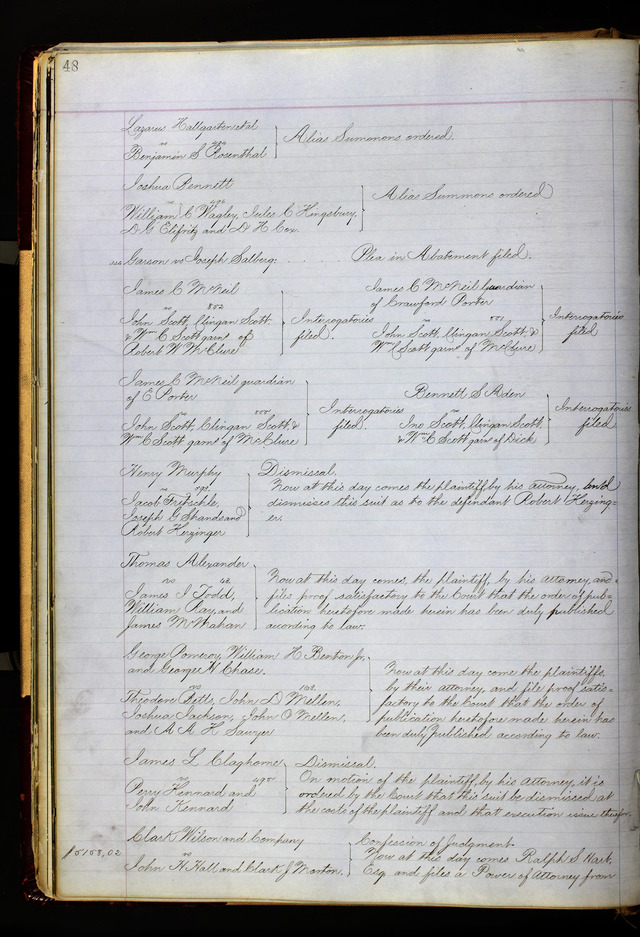 48
Lazarus Hallgarten et al
vs
Benjamin S Rosenthal
Alias Summons ordered.
Joshua Pennett
vs
William C Wagley, Jules C Kingsbury,
D G Elifritz and D H Cox.
Alias Summons ordered
Garson vs Joseph Salberg. . . . . Plea in Abatement filed.
James C McNeil
vs 802
John Scott, Clingan Scott
& Wm C Scott garns of
Robert W McClure
Interrogatories
filed.
James C McNeil Guardian
of Crawford Porter
vs
John Scott, Clingan Scott &
Wm C Scott garns of McClure
Interrogatories
filed
James C McNeil guardian
of E Porter
vs
John Scott, Clingan Scott &
Wm C Scott garns of McClure
Interrogatories
filed.
Bennett S Aden
vs
Jno Scott, Clingan Scott,
& Wm C Scott garns of Dick
Interrogatories
filed
Henry Murphy
vs
Jacob Fritschle,
Joseph G Shands and
Robert Herzinger
Dismissal.
Now at this day comes the plaintiff by his attorney, and
dismisses this suit as to the defendant Robert Herzing-
er.
Thomas Alexander
vs 48
James I Todd,
William Ray, and
James McMahan
Now at this day comes, the plaintiff, by his attorney, and
files proof satisfactory to the Court that the order of pub-
lication heretofore made herein has been duly published
according to law.
George Pomeroy, William H Benton Jr,
and George W Chase.
vs
Theodore Pitt, John D Mellen,
Joshua Jackson, John O Mellen,
and A A H Sawyer
Now at this day come the plaintiffs,
by their attorney, and file proof satis-
factory to the Court that the order of
publication heretofore made herein has
been duly published according to law.
James L Claghorne
vs
Perry Kennard and
John Kennard
Dismissal.
On motion of the plaintiff by his Attorney, it is
ordered by the Court that this suit be dismissed at
the costs of the plaintiff and that execution issue therefor.
Clark Wilson and Company
vs
John H Hall and Clark J Morton.
$5158,02
Confession of Judgment.
Now at this day comes Ralph S Hart,
Esq and files a Power of Attorney from